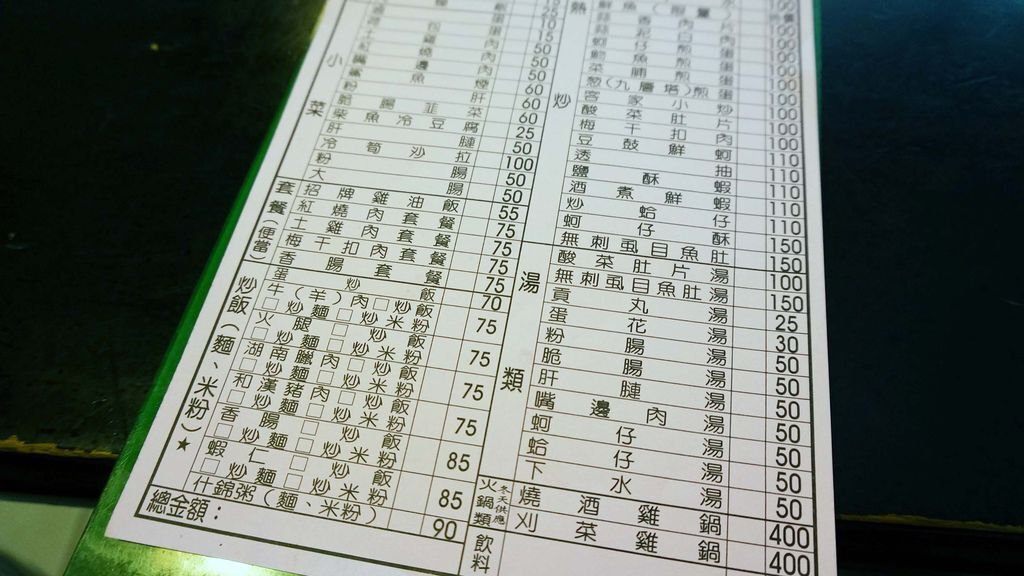 小菜
嘴邊肉 50
鯊魚煙 60
粉肝 60
脆腸韭菜 60
柴魚冷豆腐 25
肝腱 50
冷筍沙拉 100
粉腸 50
大腸 50
套餐(便當)
招牌雞油飯 55
紅燒肉套餐 75
土雞肉套餐 75
梅干扣肉套餐 75
香腸套餐 75
炒飯(麵、米粉)★
蛋炒飯 70
牛(羊)肉□炒飯
□炒麵□炒米粉 75
火腿□炒飯
□炒麵□炒米粉 75
湖南臘肉□炒飯
□炒麵□炒米粉 75
和漢豬肉□炒飯
□炒麵□炒米粉 75
香腸□炒飯
□炒麵□炒米粉 85
蝦仁□炒飯
□炒麵□炒米粉 85
什錦粥(麵、米粉) 90
總金額：
熱炒
鮮魚(限量)
蚵仔煎蛋 100
菜脯煎蛋 100
蔥(九層塔)煎蛋 100
客家小炒 100
酸菜肚片 100
梅干扣肉 100
豆鼓鮮蚵 110
透抽 110
鹽酥蝦 110
酒煮鮮蝦 110
炒蛤仔 110
蚵仔酥 150
無刺虱目魚肚 150
湯類
酸菜肚片湯 100
無刺虱目魚肚湯 150
貢丸湯 25
蛋花湯 30
粉腸湯 50
脆腸湯 50
肝腱湯 50
嘴邊肉湯 50
蚵仔湯 50
蛤仔湯 50
下水湯 50
火鍋類 冬天供應
燒酒雞鍋 400
刈菜雞鍋 400
飲料